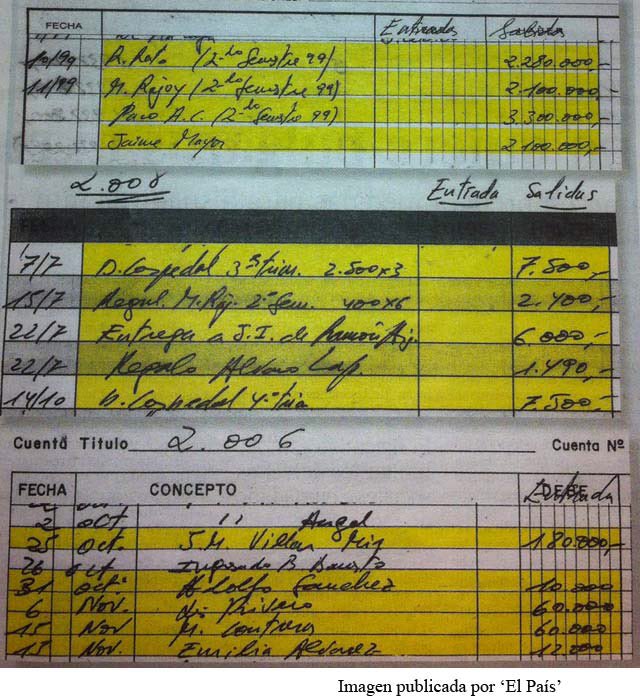 FECHA Entradas Salidas
10/99 R. Rato (2-do Semestre 99) 2.280.000,-
11/99 M. Rajoy (2-do Semestre 99) 2.100.000,-
Paco A.C. (2-do Semestre 99) 3.300.000,-
Jaime Mayor 2.100.000,-
2.008 Entrada Salidas
7/7 D. Cospedal 3º trim. 2.500x3 7.500,-
15/7 Regul. M. Raj. 2º Sem. 400x6 2.400,-
22/7 Entrega a J.I. de 6.000,-
22/7 Regalo Alvaro Lap. 1.490,-
14/10 D. Cospedal 4º trim 7.500,-
Cuenta Titulo 2.006 Cuenta Nº
FECHA CONCEPTO DEBE Entrada
2 oct " Angel
25 oct. J.M. Villar Mir 180.000,-
26 oct Ingresado B
31 oct. Adolfo Sanchez 10.000
6 Nov. Luis Rivero 60.000
15 Nov M. Contreras 60.000
15 Nov. Emilio Alvarez 12.000
Imagen publicada por ‘El País’